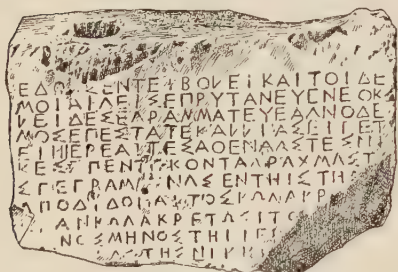 ΕΔΟΧΣΕΝΤΕΙΒΟΛΕΙΚΑΙΤΟΙΔΕ
ΜΟΙΑΙΓΕΙΣΕΠΡΥΤΑΝΕΥΕΝΕΟΚ
ΛΕΙΔΕΣΕΓΡΑΜΜΑΤΕΥΕΑΓΝΟΔΕ
ΜΟΣΕΠΕΣΤΑΤΕΚΑΛΛΙΑΣΕΙΠΕΤ
ΕΙΗΙΕΡΕΑΙΤΕΣΑΘΕΝΑΑΣΤΕΣΝΙ
ΚΕΣΠΕΝΤΕΚΟΝΤΑΔΡΑΧΜΑΣΤ
ΣΓΕΓΡΑΜΜΕΝΑΣΕΝΤΗΙΣΤΗ
ΠΟΔΙΔΟΝΑΙΤΟΣΚΩΛΑΚΡ
ΑΝΚΩΛΑΚΡΕΤΩΣΙΤΟ
ΝΟΣΜΗΝΟΣΤΗΙΙΕΡ
ΑΣΤΗΣΝΙΚΗ